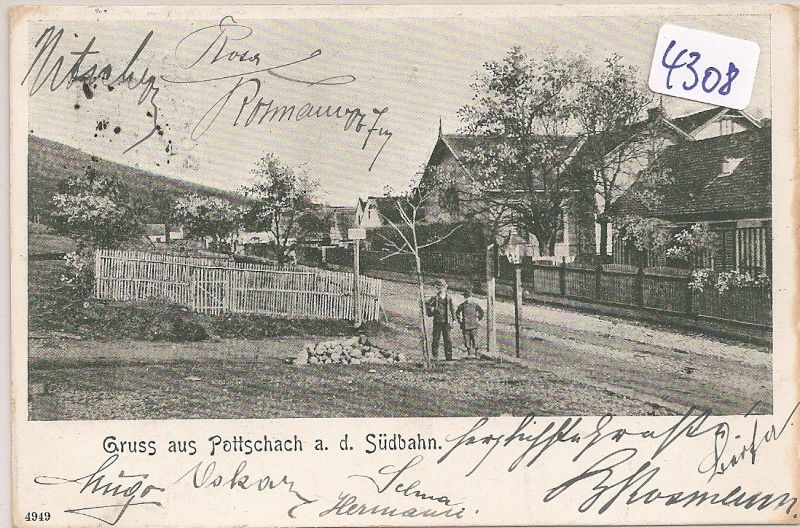 4308
Rosa
Gruss aus Pottschach a. d. Südbahn.
herzlichste Grüße
Hugo Oskar Selma
Hermann
4949